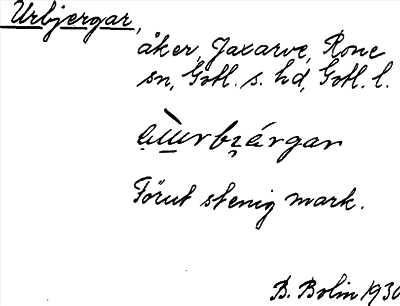 Urbjergar,
åker, Jaxarve, Rone
sn, Gotl. s. hd, Gotl. l.
Förut stenig mark.
B. Bolin 1930